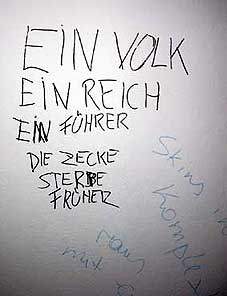 EIN VOLK
EIN REICH
EIN FÜHRER
DIE ZECKE
STERBE
FRÜHER
Skins in
Komplex
raus
mit